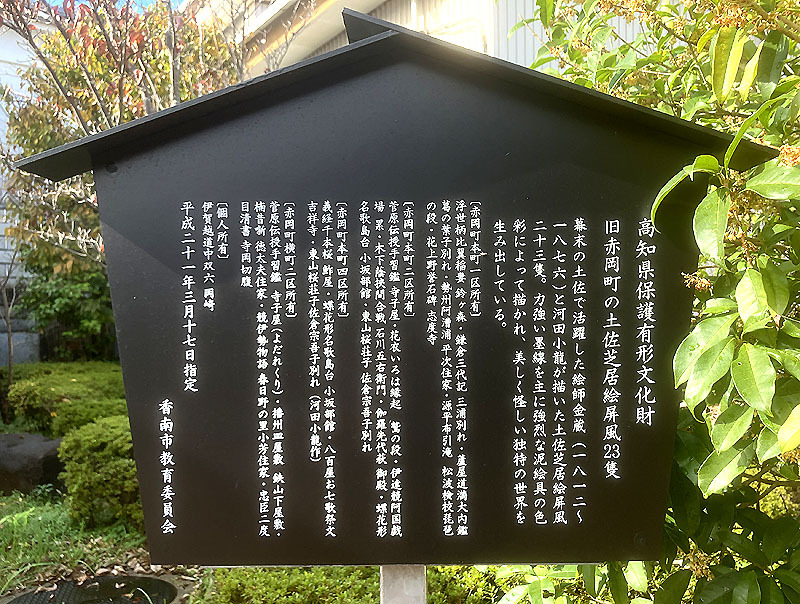 高知県保護有形文化財
旧赤岡町の土佐芝居絵屏風23隻
幕末の土佐で活躍した絵師金蔵（一八一二〜
一八七六）と河田小龍が描いた土佐芝居絵屏風
二十三隻。力強い墨線を主に強烈な泥絵具の色
彩によって描かれ、美しく怪しい独特の世界を
生み出している。
［赤岡町本町一区所有］
浮世柄比翼稲妻 鈴ヶ森・鎌倉三代記 三浦別れ・蘆屋道満大内鑑
葛の葉子別れ・勢州阿漕浦 平次住家・源平布引滝 松波検校琵琶
の段・花上野誉石碑 志度寺
［赤岡町本町二区所有］
菅原伝授手習鑑 寺子屋・花衣いろは縁起 鷲の段・伊達競阿国戯
場 累・木下蔭狭間合戦 石川五右衛門・伽羅先代萩 御殿・蝶花形
名歌島台 小坂部館・東山桜荘子 佐倉宗吾子別れ
［赤岡町本町四区所有］
義経千本桜 鮓屋・蝶花形名歌島台 小坂部館・八百屋お七歌祭文
吉祥寺・東山桜荘子佐倉宗吾子別れ（河田小龍作）
［赤岡町横町二区所有］
菅原伝授手習鑑 寺子屋（よだれくり）・播州皿屋敷 鉄山下屋敷・
楠昔噺 徳太夫住家・競伊勢物語 春日野の里小芳住家・忠臣二度
目清書 寺岡切腹
［個人所有］
伊賀越道中双六 岡崎
平成二十一年三月十七日指定
香南市教育委員会